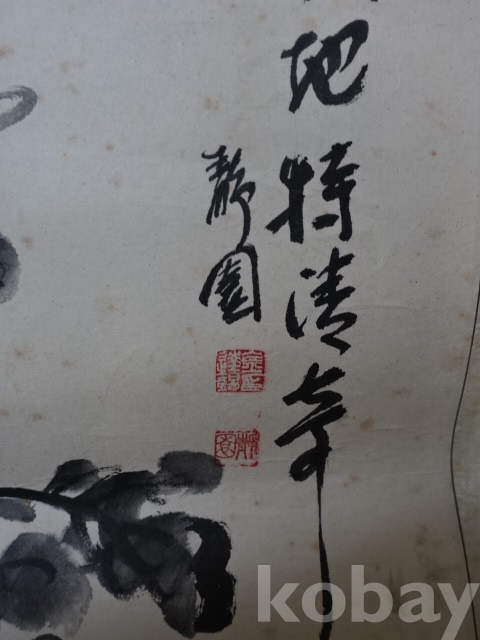 地特清奇
靜園
kobay